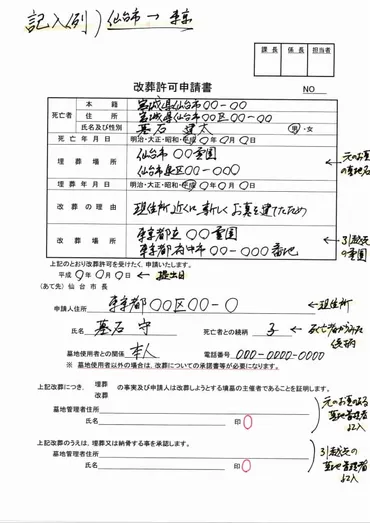 記入例) 仙台市→東京
課長 係長 担当者
改葬許可申請書
NO
死亡者
本籍 宮城県仙台市〇〇-〇〇
住所 宮城県仙台市〇〇区〇〇-〇〇
氏名及び性別 墓石 建太 男・女
死亡年月日 明治・大正・昭和・平成〇年〇月〇日
埋葬場所 仙台市〇〇霊園
仙台市泉区〇〇-〇〇〇
←元のお墓の墓地名
埋葬年月日 明治・大正・昭和・平成〇年〇月〇日
改葬の理由 現住所近くに新しくお墓を建てたため
改葬場所 東京都立〇〇霊園
東京都府中市〇〇-〇〇〇番地
←引越先の霊園
上記のとおり改葬許可を受けたく、申請いたします。
平成〇年〇月〇日 ←提出日
(あて先)仙台市長
申請人住所 東京都〇〇区〇〇-〇 ←現住所
氏名 墓石 守 死亡者との続柄 子 ←死亡者からみた続柄
墓地使用者との関係 本人 電話番号 000-0000-0000
※ 墓地使用者以外の場合は、改葬についての承諾書等が必要になります。
上記改葬につき、埋葬 改葬 の事実及び申請人は改葬しようとする墳墓の主催者であることを証明します。
墓地管理者住所
氏名 印
元のお墓のある墓地管理者記入
上記改葬のうえは、埋葬又は納骨する事を承諾します。
墓地管理者住所
氏名 印
引越先の墓地管理者記入